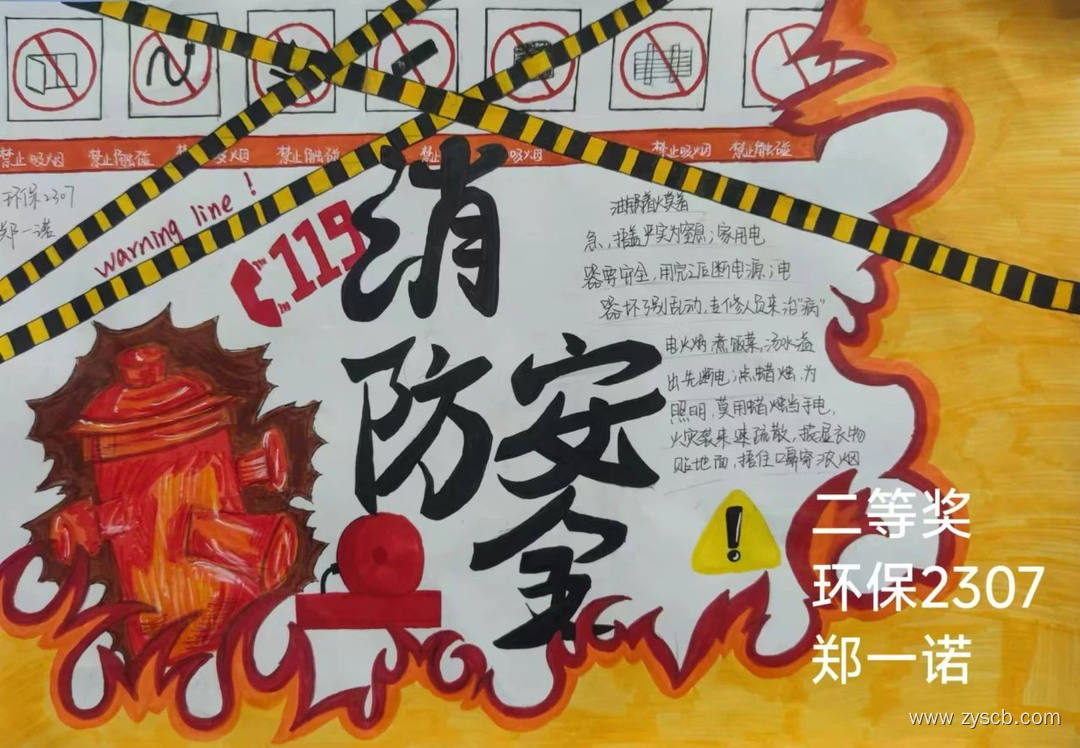 禁止吸烟 禁止触碰 禁止吸烟 禁止触碰 禁止 吸烟 禁止吸烟 禁止触碰
环保2307
郑一诺
warning line!
119
消
防安
全
油锅着火莫着
急,捂盖严实为窒息;家用电
器要守全,用完记后断电源;电
器坏 别乱动,去修人员来治"病"
电火锅,煮饭菜,汤水溢
出先断电;点蜡烛,为
照明,莫用蜡烛当手电,
火灾袭来速疏散,披湿衣物
贴地面,捂住口鼻穿浓烟
二等奖
环保2307
郑一诺
www.zyscb.com